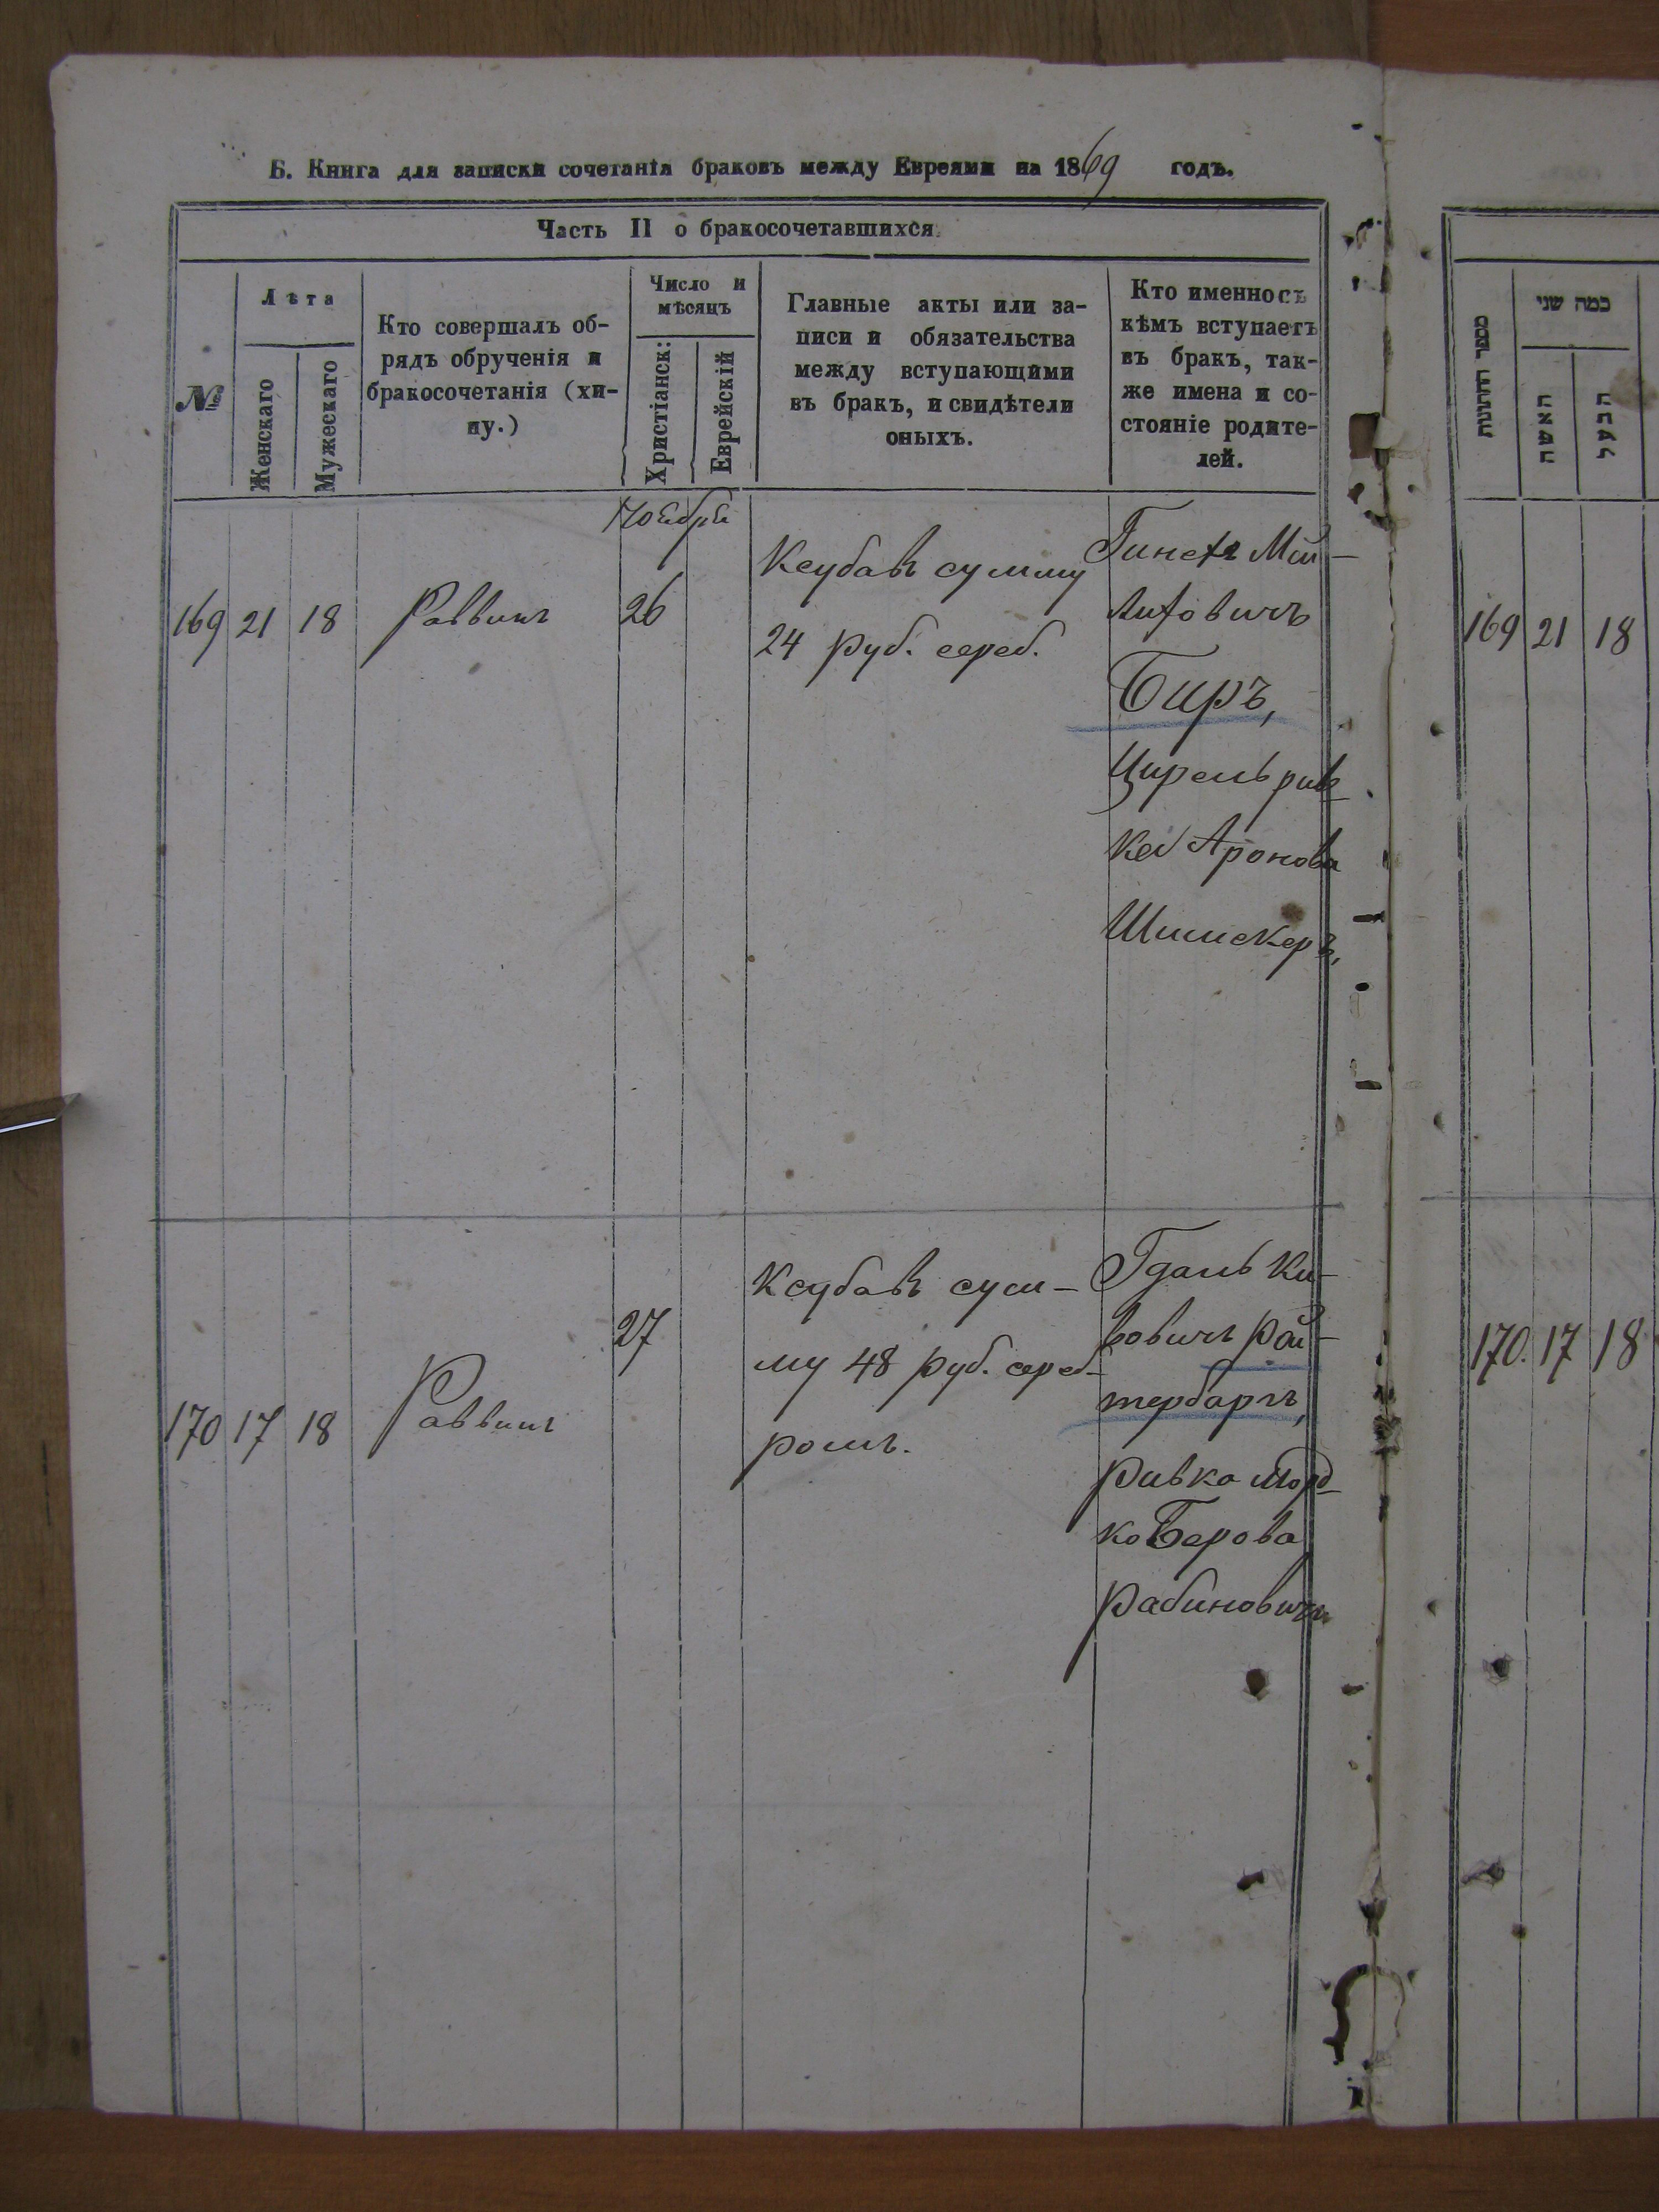 Б. Книга для записки сочетанія браковъ между Евреями на 1869 годъ.
Часть II о бракосочетавшихся.
№
Лѣта
Женскаго
Мужескаго
Кто совершалъ об-
рядъ обрученія и
бракосочетанія (хи-
пу.)
Число и
мѣсяцъ
Христіанск:
Еврейскій
Главные акты или за-
писи и обязательства
между вступающими
въ бракъ, и свидѣтели
оныхъ.
Кто именно съ
кѣмъ вступаетъ
въ бракъ, так-
же имена и со-
стояніе родите-
лей.
Ноября
169 21 18 Раввинъ 26
Ксубавъ сумму
24 руб. сереб.
Биръ,
Цирель рив
кей Аронова
170 17 18 Раввинъ 27
Ксубавъ сум-
му 48 руб. среб-
ромъ.
Гдаль Ки-
вовичъ Рой-
тербаргъ,
Ривка Морд-
ко Берова
Рабиновичъ
מספר החתונות
כמה שני
האשה
הבעל
169 21 18
170. 17 18